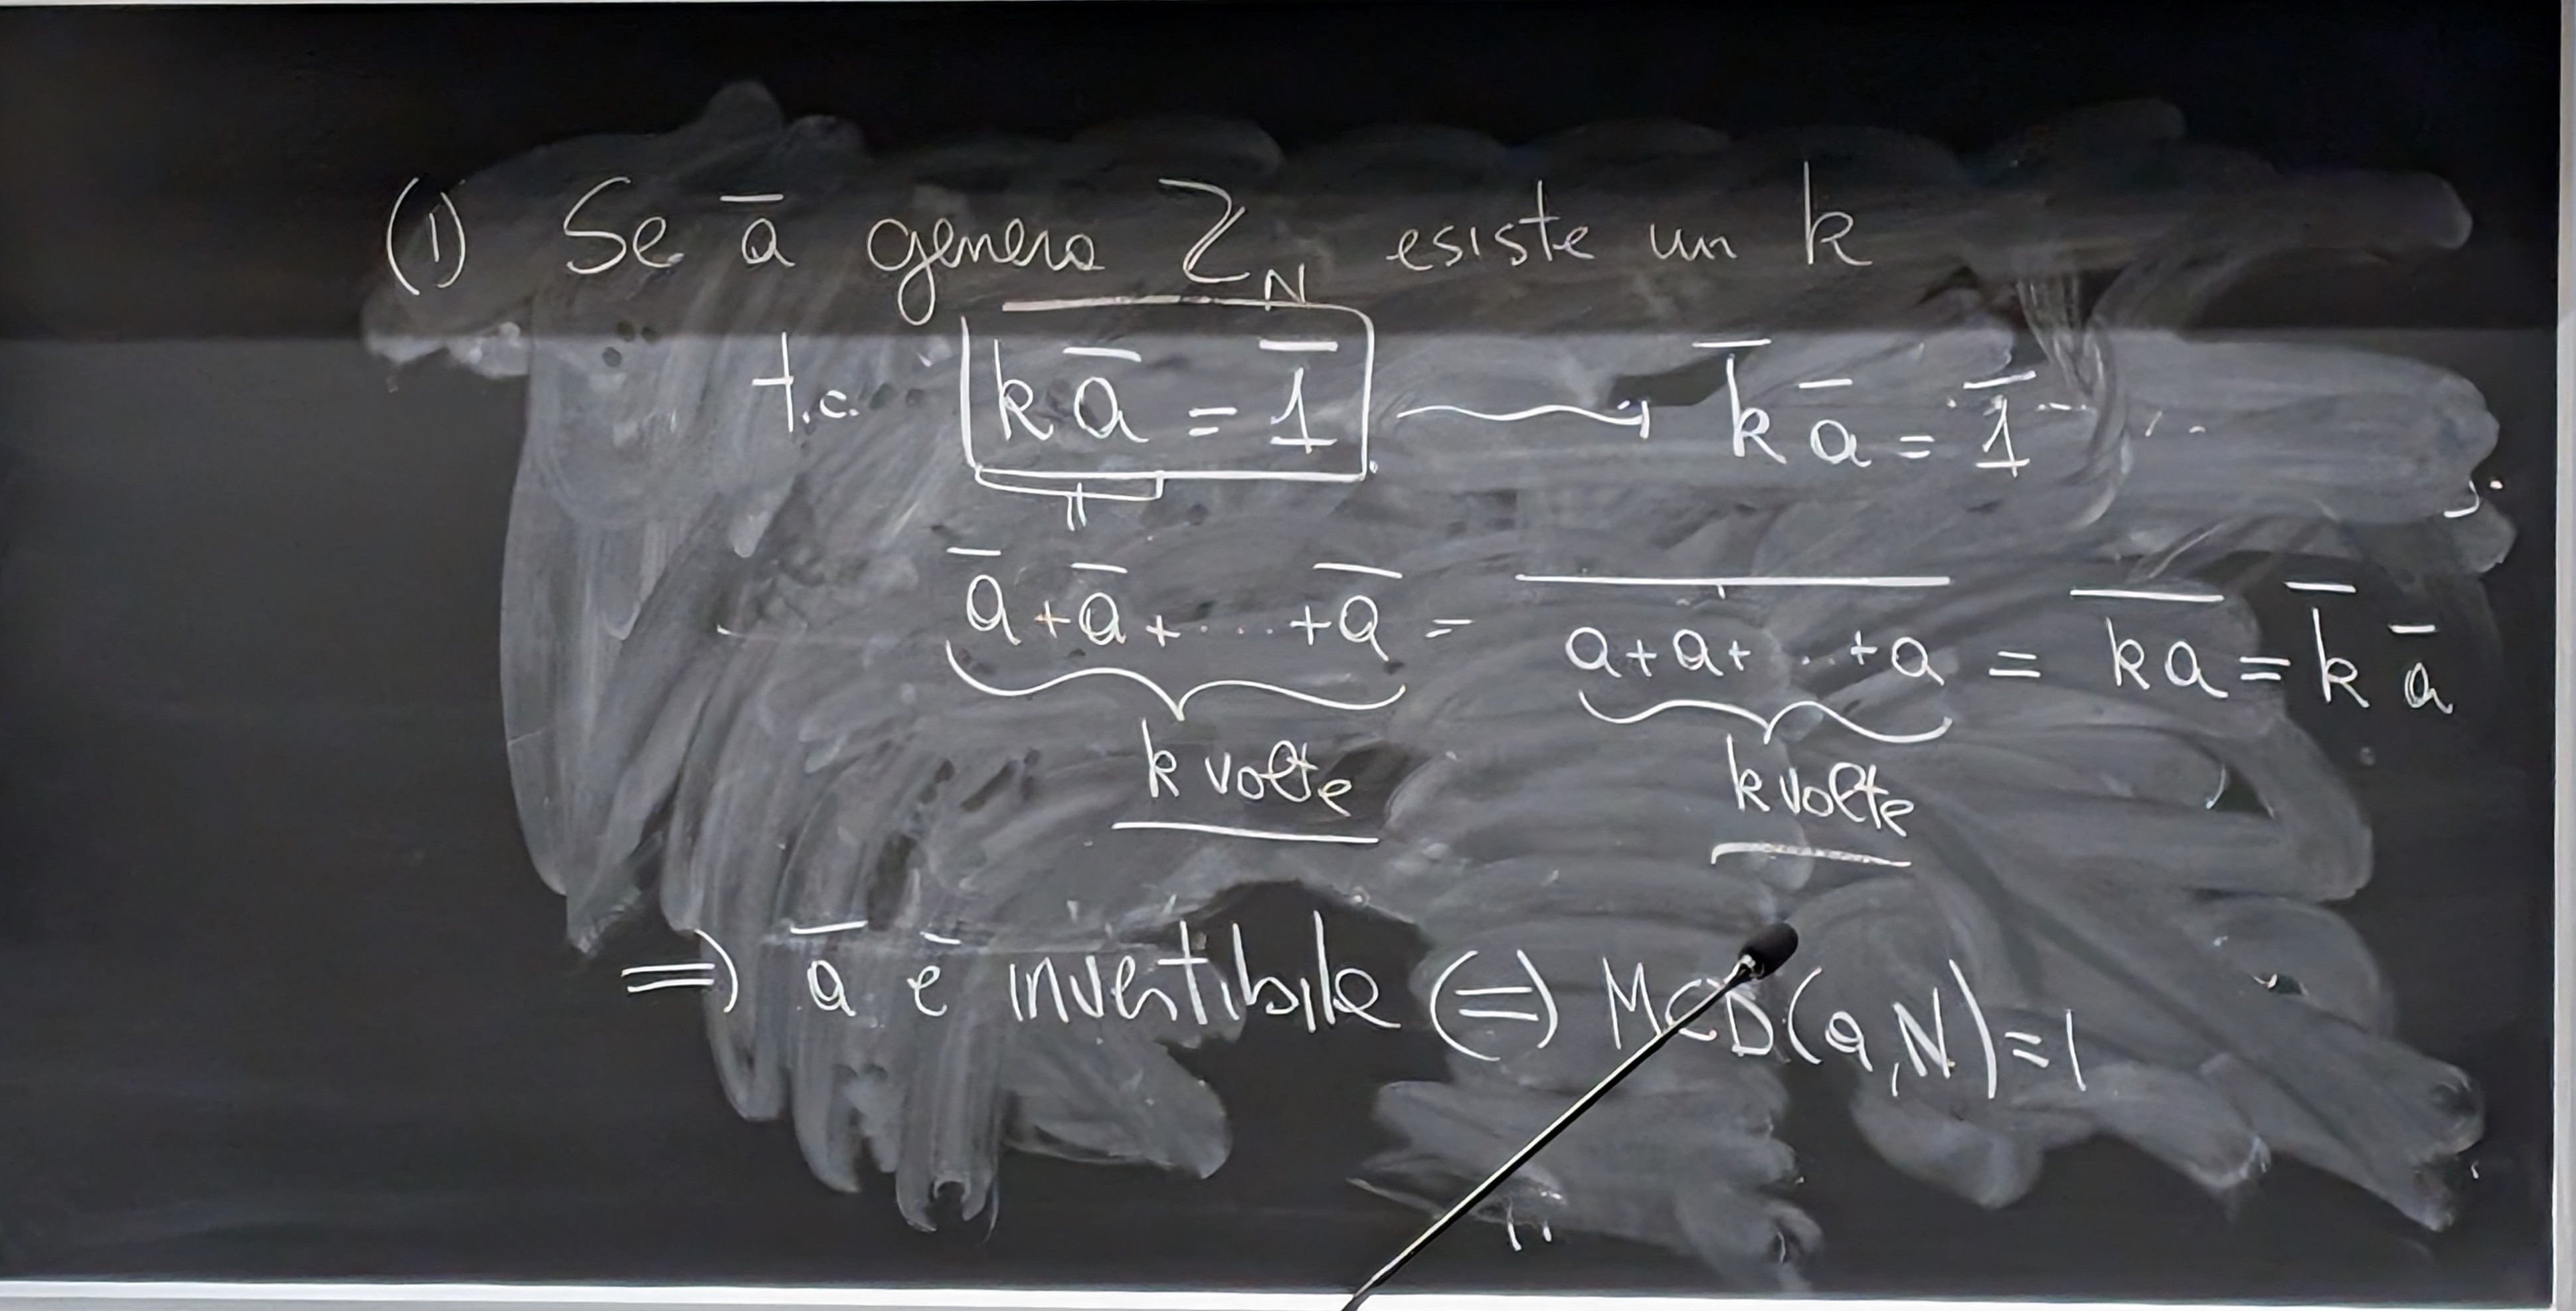 (1) Se a̅ genera Z_N esiste un k
t.c. k a̅ = 1̅ ⟶ k̅ a̅ = 1̅
a̅ + a̅ + ... + a̅ = \overline{a + a + ... + a} = \overline{ka} = k̅ a̅
k volte k volte
⇒ a̅ è invertibile ⇔ MCD(a,N)=1